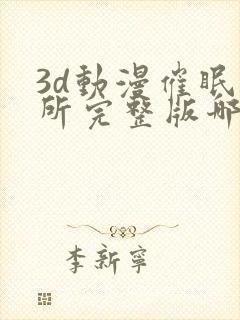 3d動漫催眠
所完整版哪
李新寧